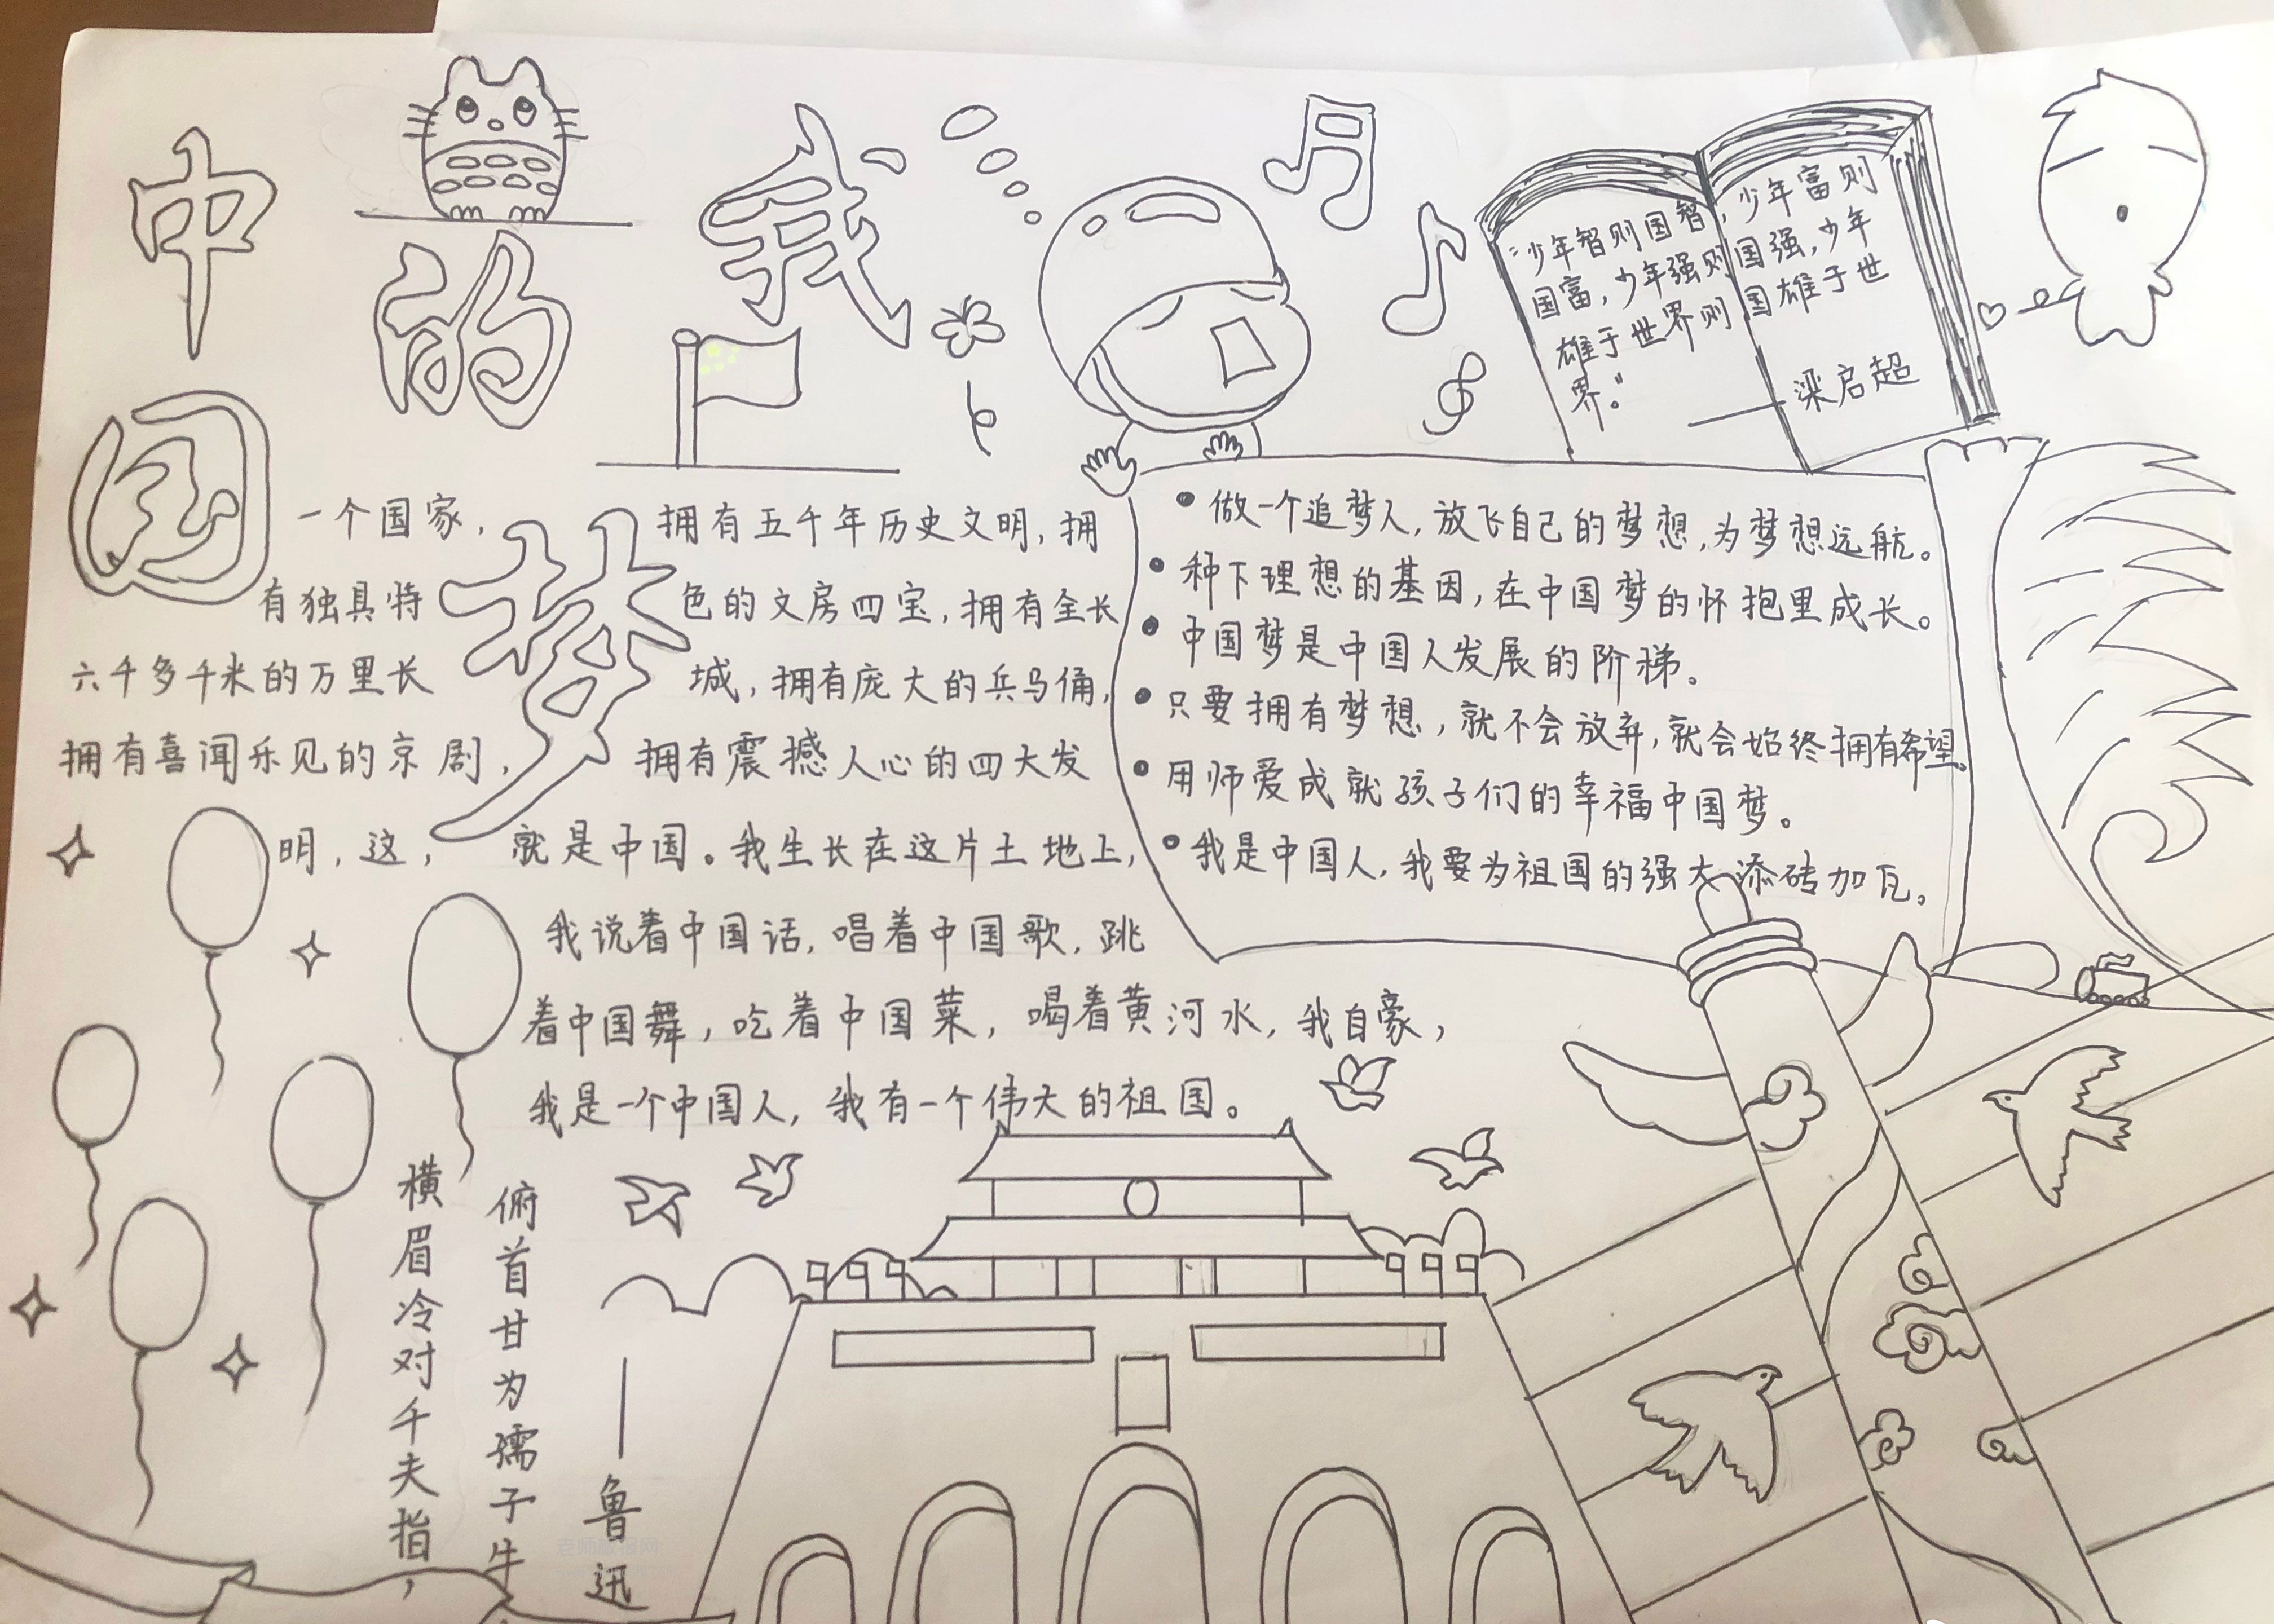 我的中国梦
一个国家，拥有五千年历史文明，拥
有独具特色的文房四宝，拥有全长
六千多千米的万里长城，拥有庞大的兵马俑，
拥有喜闻乐见的京剧，拥有震撼人心的四大发
明，这，就是中国。我生长在这片土地上，
我说着中国话，唱着中国歌，跳
着中国舞，吃着中国菜，喝着黄河水，我自豪，
我是一个中国人，我有一个伟大的祖国。
“少年智则国智，少年富则
国富，少年强则国强，少年
雄于世界则国雄于世
界。”
——梁启超
•做一个追梦人，放飞自己的梦想，为梦想远航。
•种下理想的基因，在中国梦的怀抱里成长。
•中国梦是中国人发展的阶梯。
•只要拥有梦想，就不会放弃，就会始终拥有希望。
•用师爱成就孩子们的幸福中国梦。
•我是中国人，我要为祖国的强大添砖加瓦。
横眉冷对千夫指，
俯首甘为孺子牛
——鲁迅